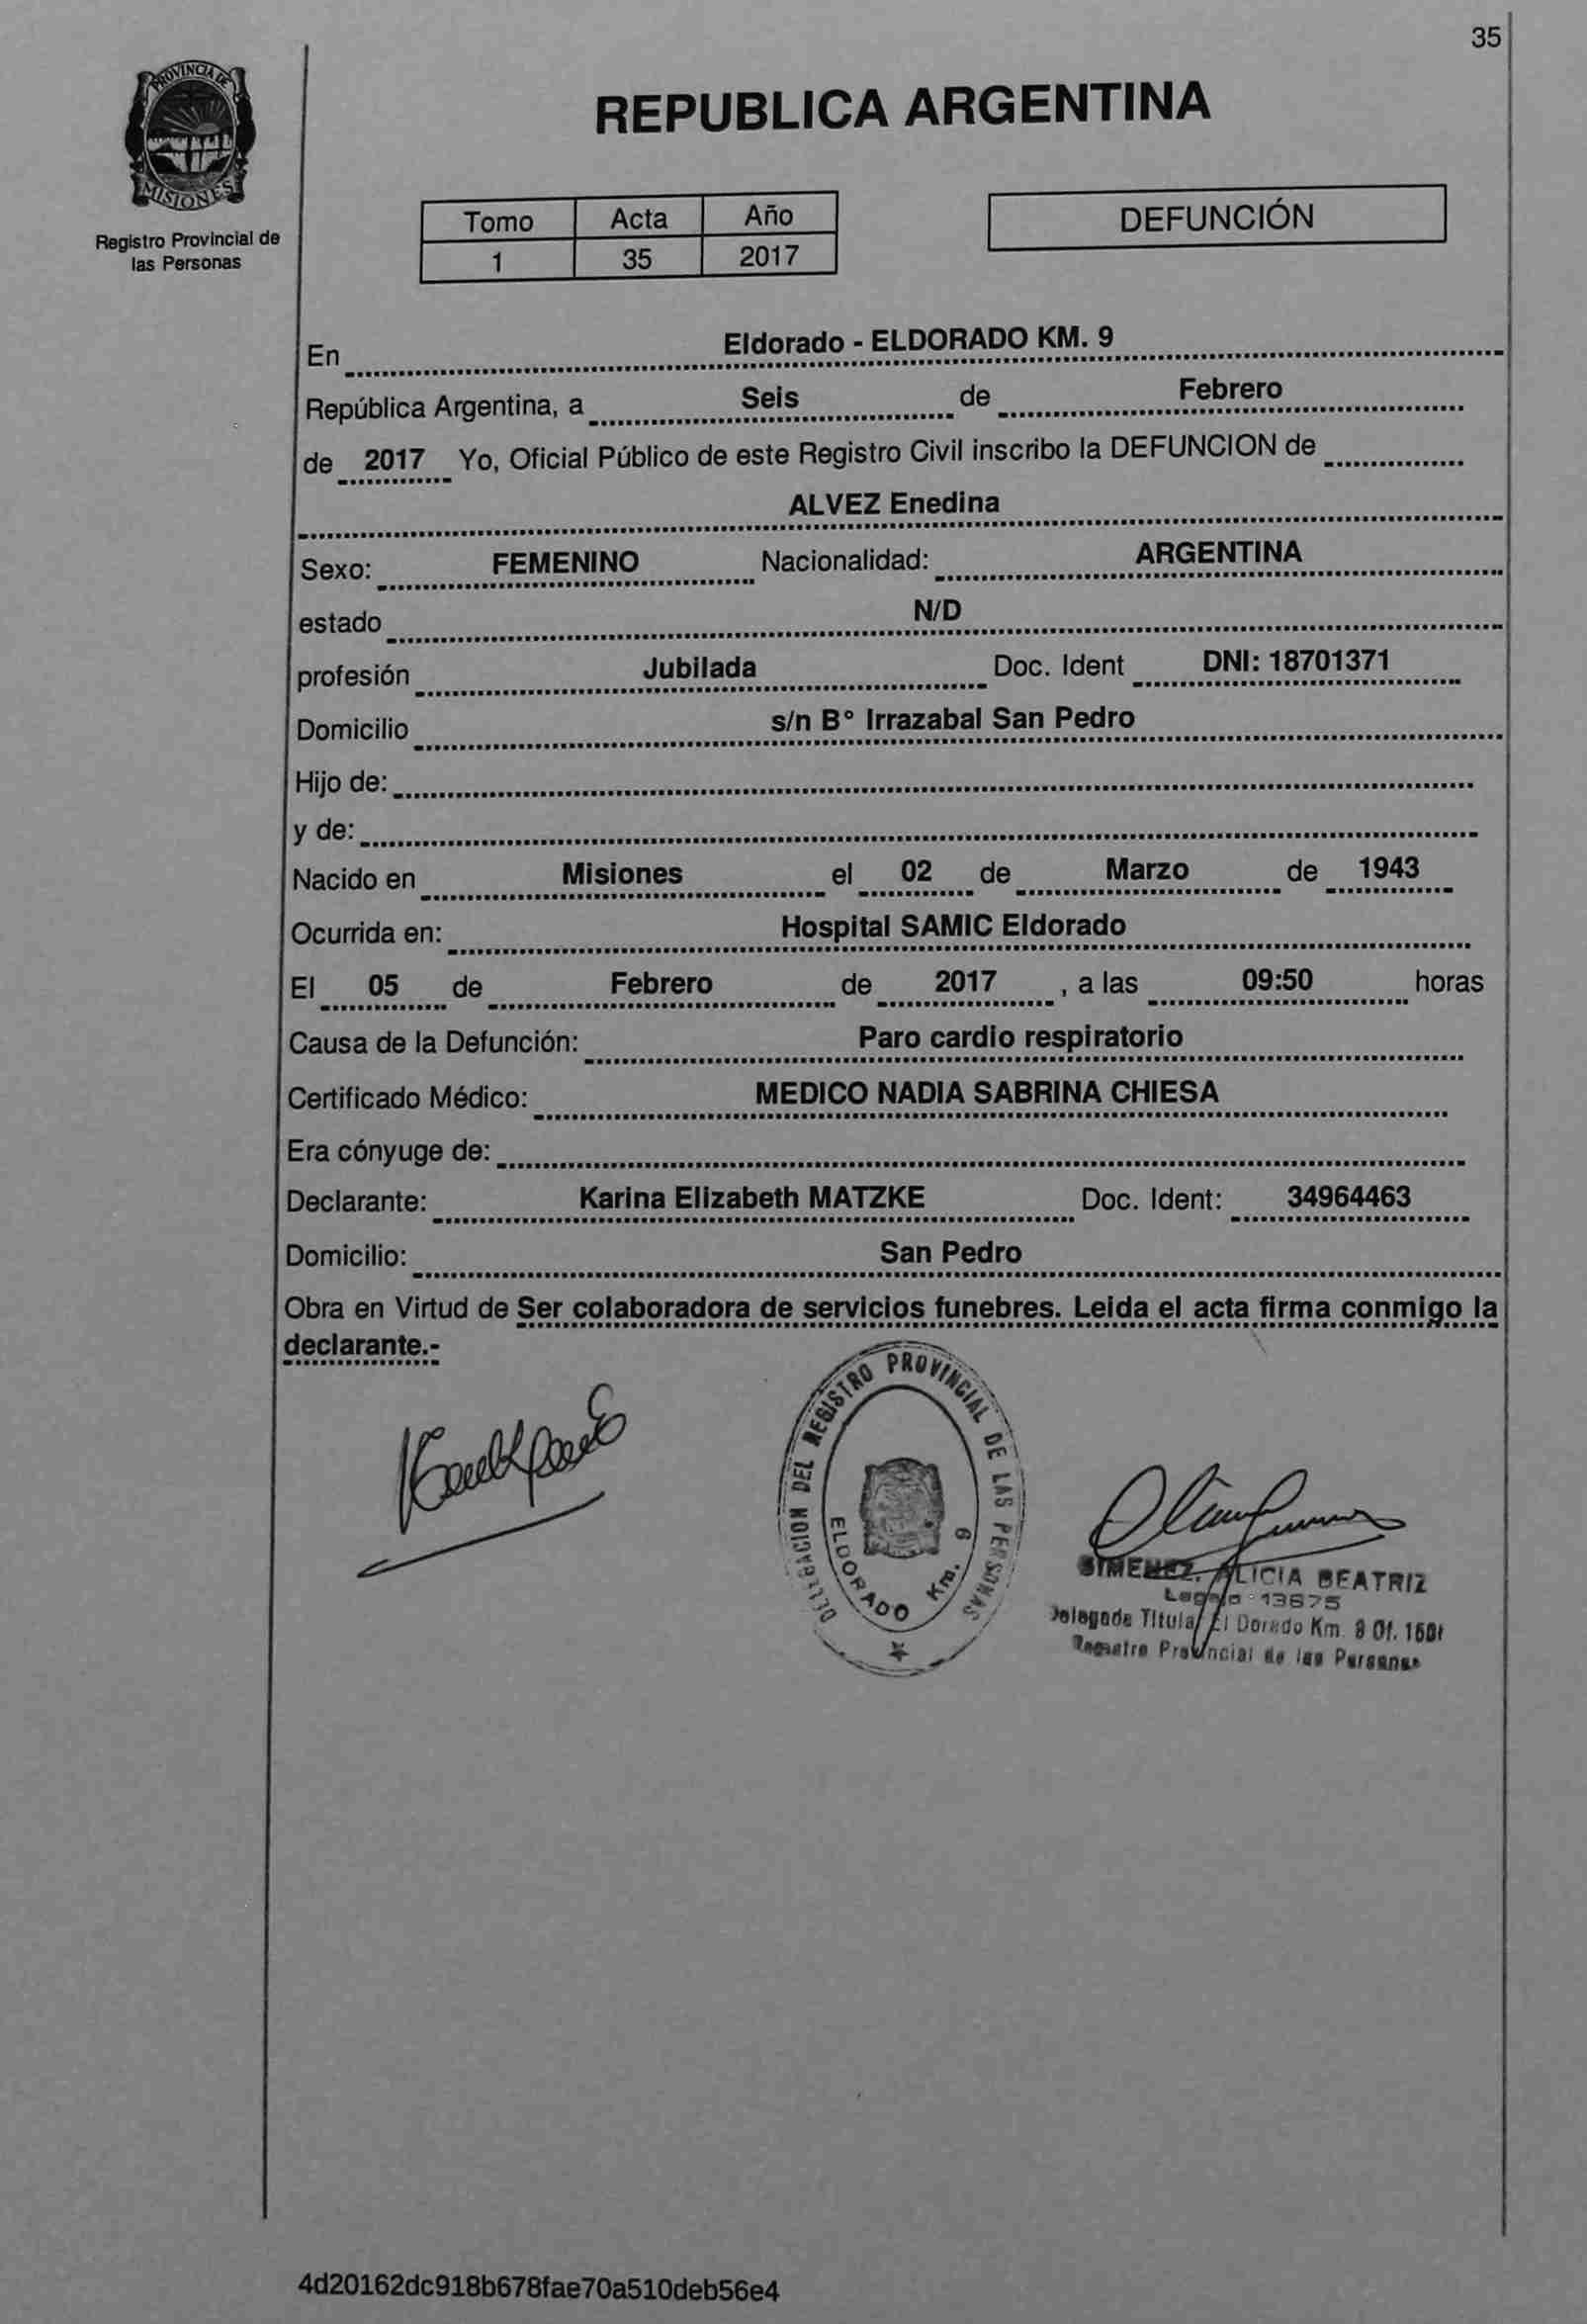 35
PROVINCIA DE
MISIONES
Registro Provincial de
las Personas
REPUBLICA ARGENTINA
Tomo Acta Año
1 35 2017
DEFUNCIÓN
En Eldorado - ELDORADO KM. 9
República Argentina, a Seis de Febrero
de 2017 Yo, Oficial Público de este Registro Civil inscribo la DEFUNCION de
ALVEZ Enedina
Sexo: FEMENINO Nacionalidad: ARGENTINA
estado N/D
profesión Jubilada Doc. Ident DNI: 18701371
Domicilio s/n B° Irrazabal San Pedro
Hijo de:
y de:
Nacido en Misiones el 02 de Marzo de 1943
Ocurrida en: Hospital SAMIC Eldorado
El 05 de Febrero de 2017 , a las 09:50 horas
Causa de la Defunción: Paro cardio respiratorio
Certificado Médico: MEDICO NADIA SABRINA CHIESA
Era cónyuge de:
Declarante: Karina Elizabeth MATZKE Doc. Ident: 34964463
Domicilio: San Pedro
Obra en Virtud de Ser colaboradora de servicios funebres. Leida el acta firma conmigo la
declarante.-
DELEGACION DEL REGISTRO PROVINCIAL DE LAS PERSONAS
ELDORADO Km. 9
GIMENEZ, ALICIA BEATRIZ
Legajo 13675
Delegada Titular El Dorado Km. 9 Of.
Registro Provincial de las Personas
4d20162dc918b678fae70a510deb56e4